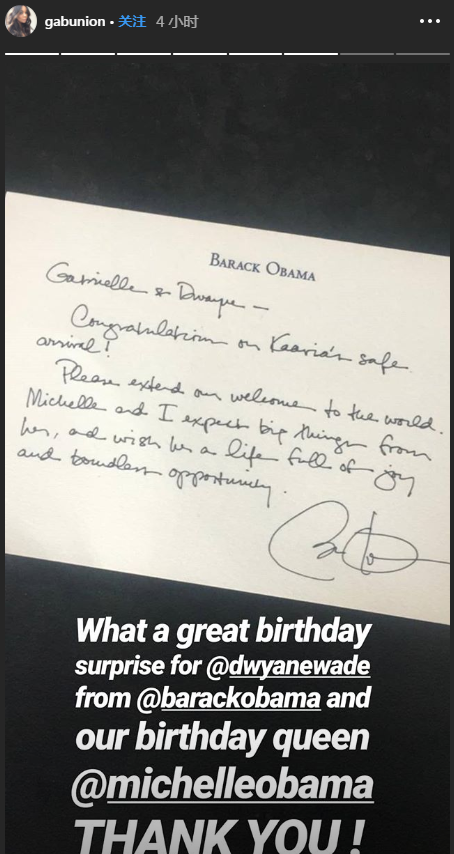 gabunion • 关注 4 小时
BARACK OBAMA
Gabrielle & Dwayne —
Congratulations on Kaavia's safe
arrival!
Please extend our welcome to the world.
Michelle and I expect big things from
her, and wish her a life full of joy
and boundless opportunity.
What a great birthday
surprise for @dwyanewade
from @barackobama and
our birthday queen
@michelleobama
THANK YOU!